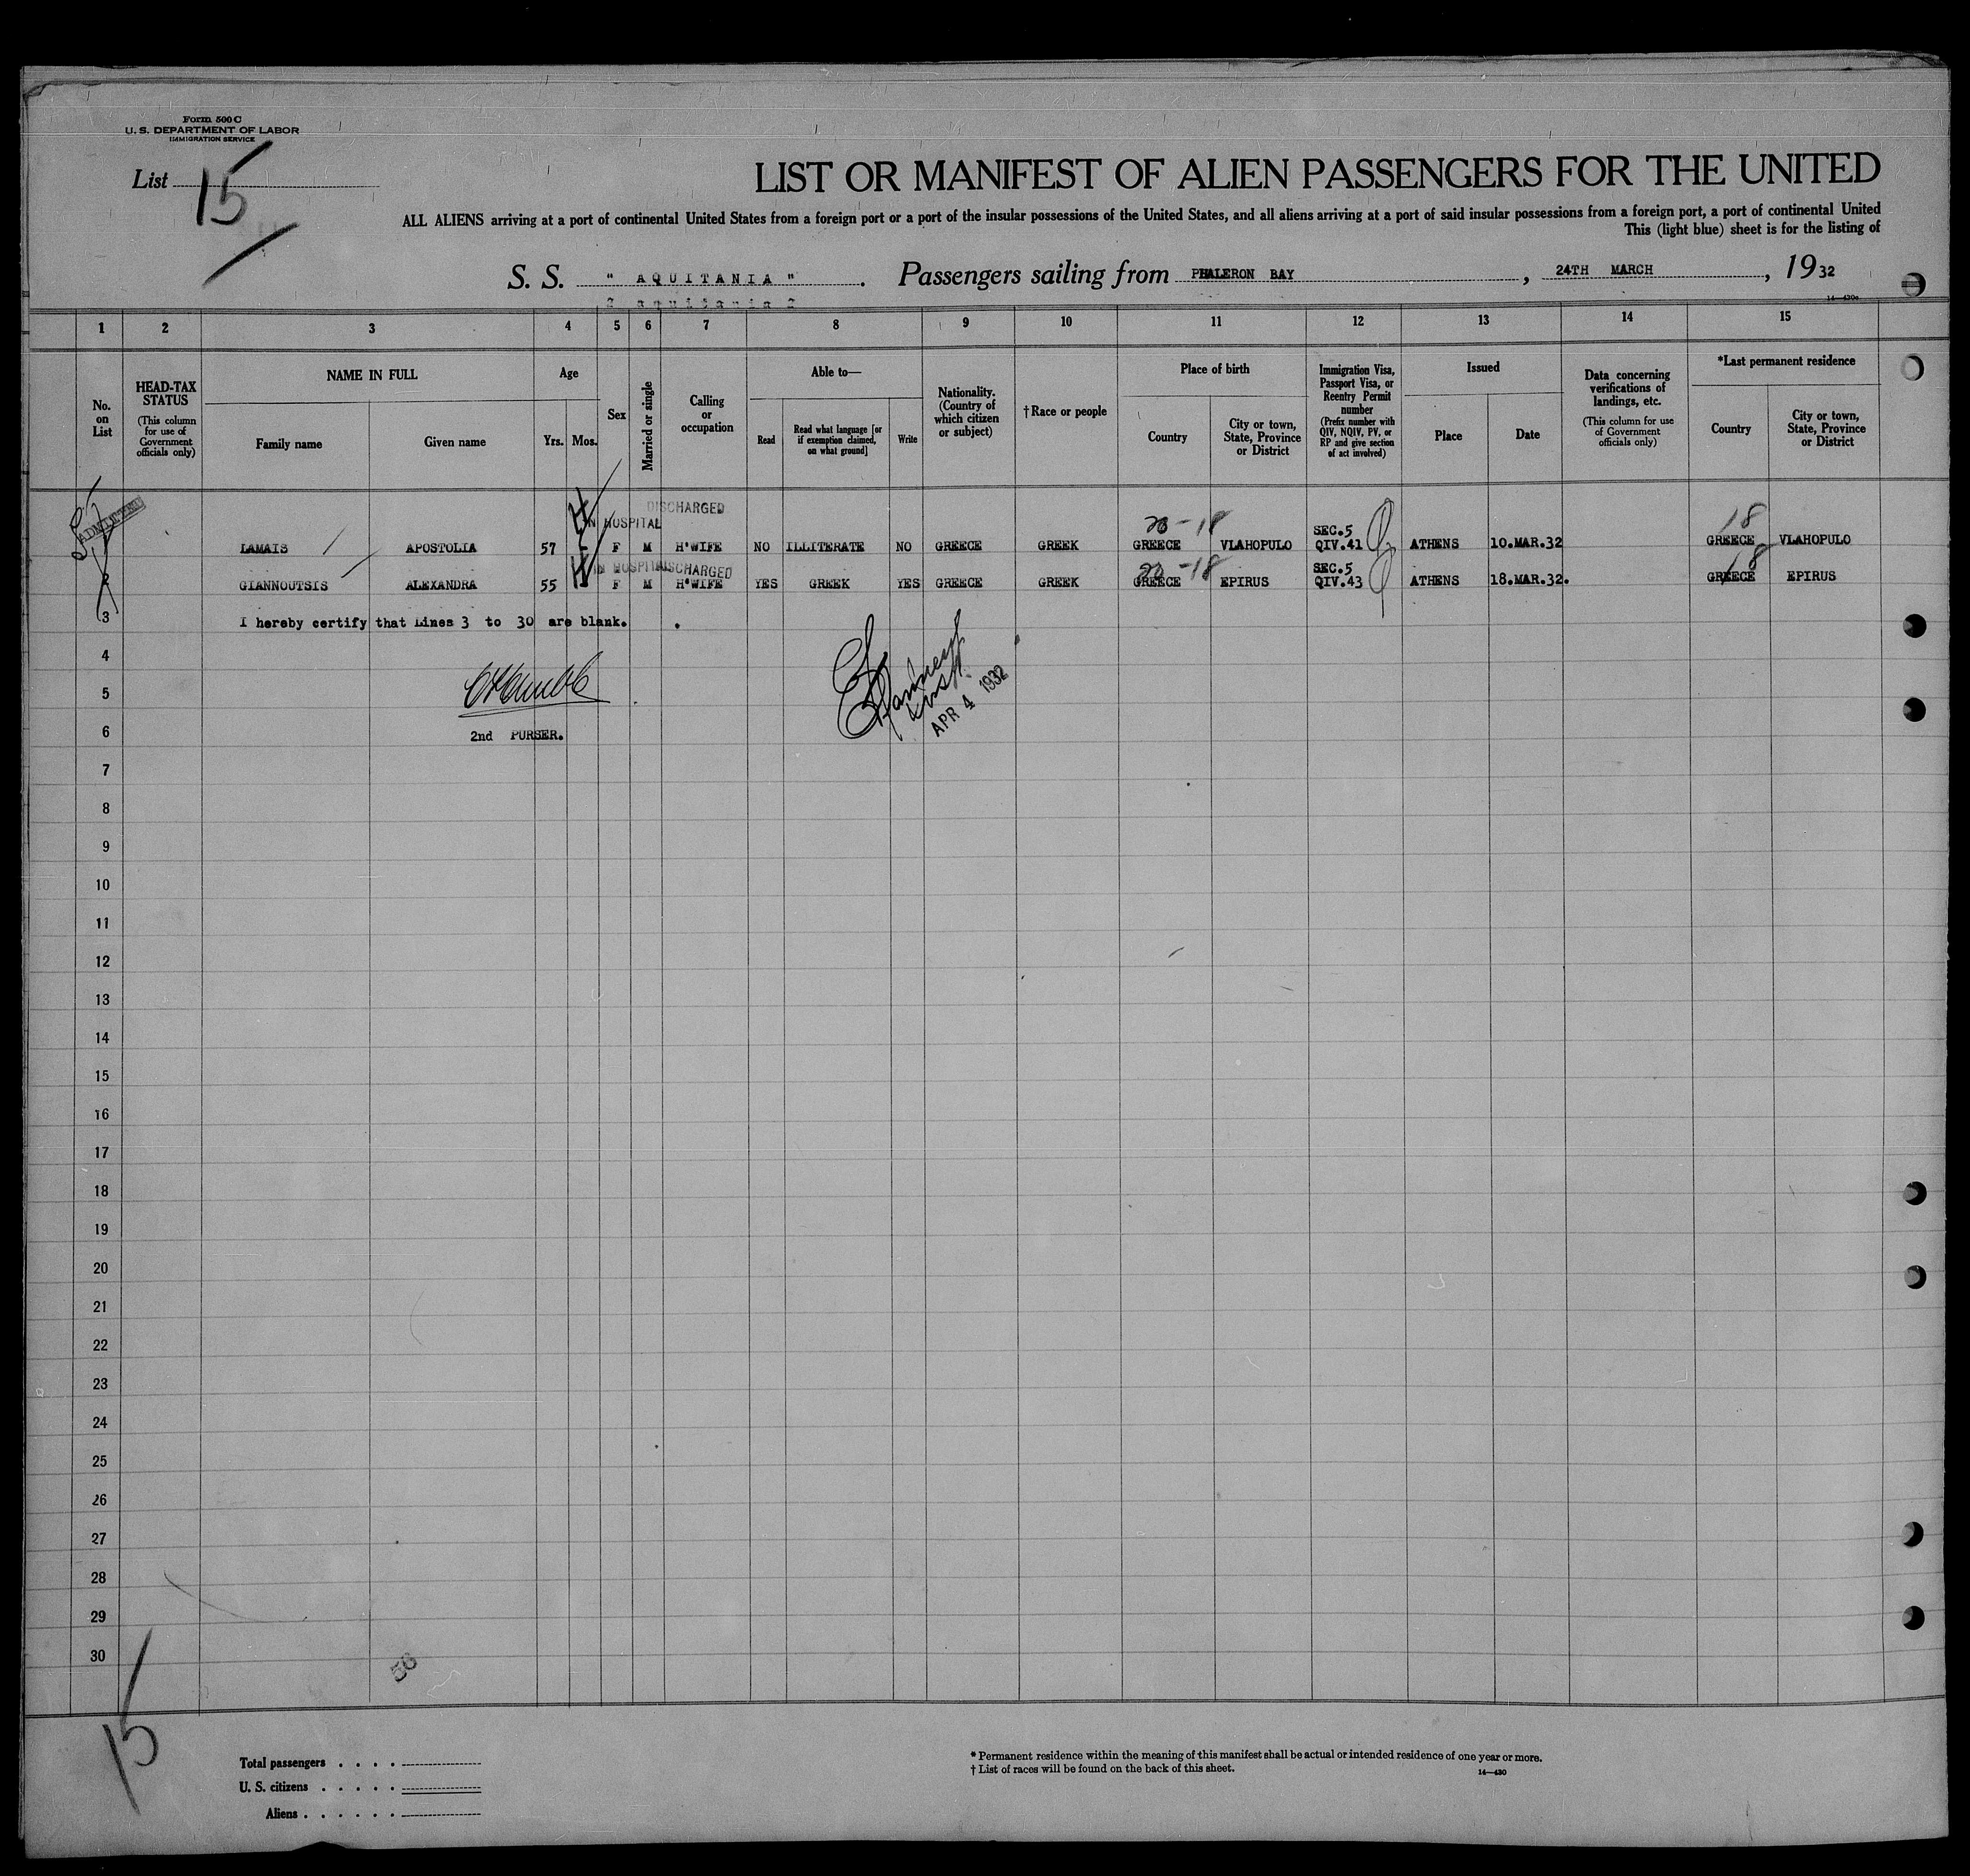 Form 500 C
U. S. DEPARTMENT OF LABOR
IMMIGRATION SERVICE
List 15
LIST OR MANIFEST OF ALIEN PASSENGERS FOR THE UNITED
ALL ALIENS arriving at a port of continental United States from a foreign port or a port of the insular possessions of the United States, and all aliens arriving at a port of said insular possessions from a foreign port, a port of continental United
This (light blue) sheet is for the listing of
S. S. " AQUITANIA ". Passengers sailing from PHALERON BAY, 24TH MARCH, 1932
2 aquitania 2
1 2 3 4 5 6 7 8 9 10 11 12 13 14 15
No. on List
HEAD-TAX STATUS
(This column for use of Government officials only)
NAME IN FULL
Family name
Given name
Age
Yrs. Mos.
Sex
Married or single
Calling or occupation
Able to—
Read
Read what language [or if exemption claimed, on what ground]
Write
Nationality. (Country of which citizen or subject)
†Race or people
Place of birth
Country
City or town, State, Province or District
Immigration Visa, Passport Visa, or Reentry Permit number
(Prefix number with QIV, NQIV, PV, or RP and give section of act involved)
Issued
Place
Date
Data concerning verifications of landings, etc.
(This column for use of Government officials only)
*Last permanent residence
Country
City or town, State, Province or District
ADMITTED
DISCHARGED
IN HOSPITAL
20-18
SEC.5
18
LAMAIS APOSTOLIA 57 F M H'WIFE NO ILLITERATE NO GREECE GREEK GREECE VLAHOPULO QIV.41 ATHENS 10.MAR.32 GREECE VLAHOPULO
IN HOSPITAL DISCHARGED
20-18
SEC.5
18
2 GIANNOUTSIS ALEXANDRA 55 F M H'WIFE YES GREEK YES GREECE GREEK GREECE EPIRUS QIV.43 ATHENS 18.MAR.32. GREECE EPIRUS
3 I hereby certify that Lines 3 to 30 are blank.
4
5
APR 4 1932
6 2nd PURSER.
7
8
9
10
11
12
13
14
15
16
17
18
19
20
21
22
23
24
25
26
27
28
29
30
56
15
Total passengers
U. S. citizens
Aliens
* Permanent residence within the meaning of this manifest shall be actual or intended residence of one year or more.
† List of races will be found on the back of this sheet.
14—430